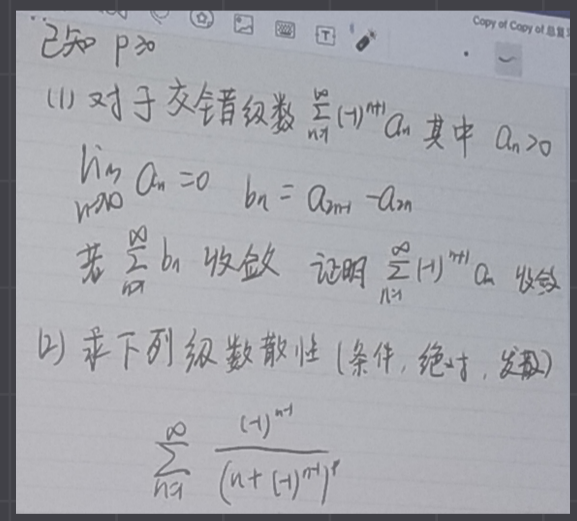 Copy of Copy of 总复
已知 p≥0
(1) 对于交错级数 $\sum_{n=1}^{\infty} (-1)^{n+1} a_n$ 其中 $a_n>0$
$\lim_{n\to\infty} a_n = 0$ $b_n = a_{2n-1} - a_{2n}$
若 $\sum_{n=1}^{\infty} b_n$ 收敛 证明 $\sum_{n=1}^{\infty} (-1)^{n+1} a_n$ 收敛
(2) 求下列级数散性 (条件, 绝对, 发散)
$\sum_{n=1}^{\infty} \frac{(-1)^{n-1}}{(n+(-1)^{n-1})^p}$